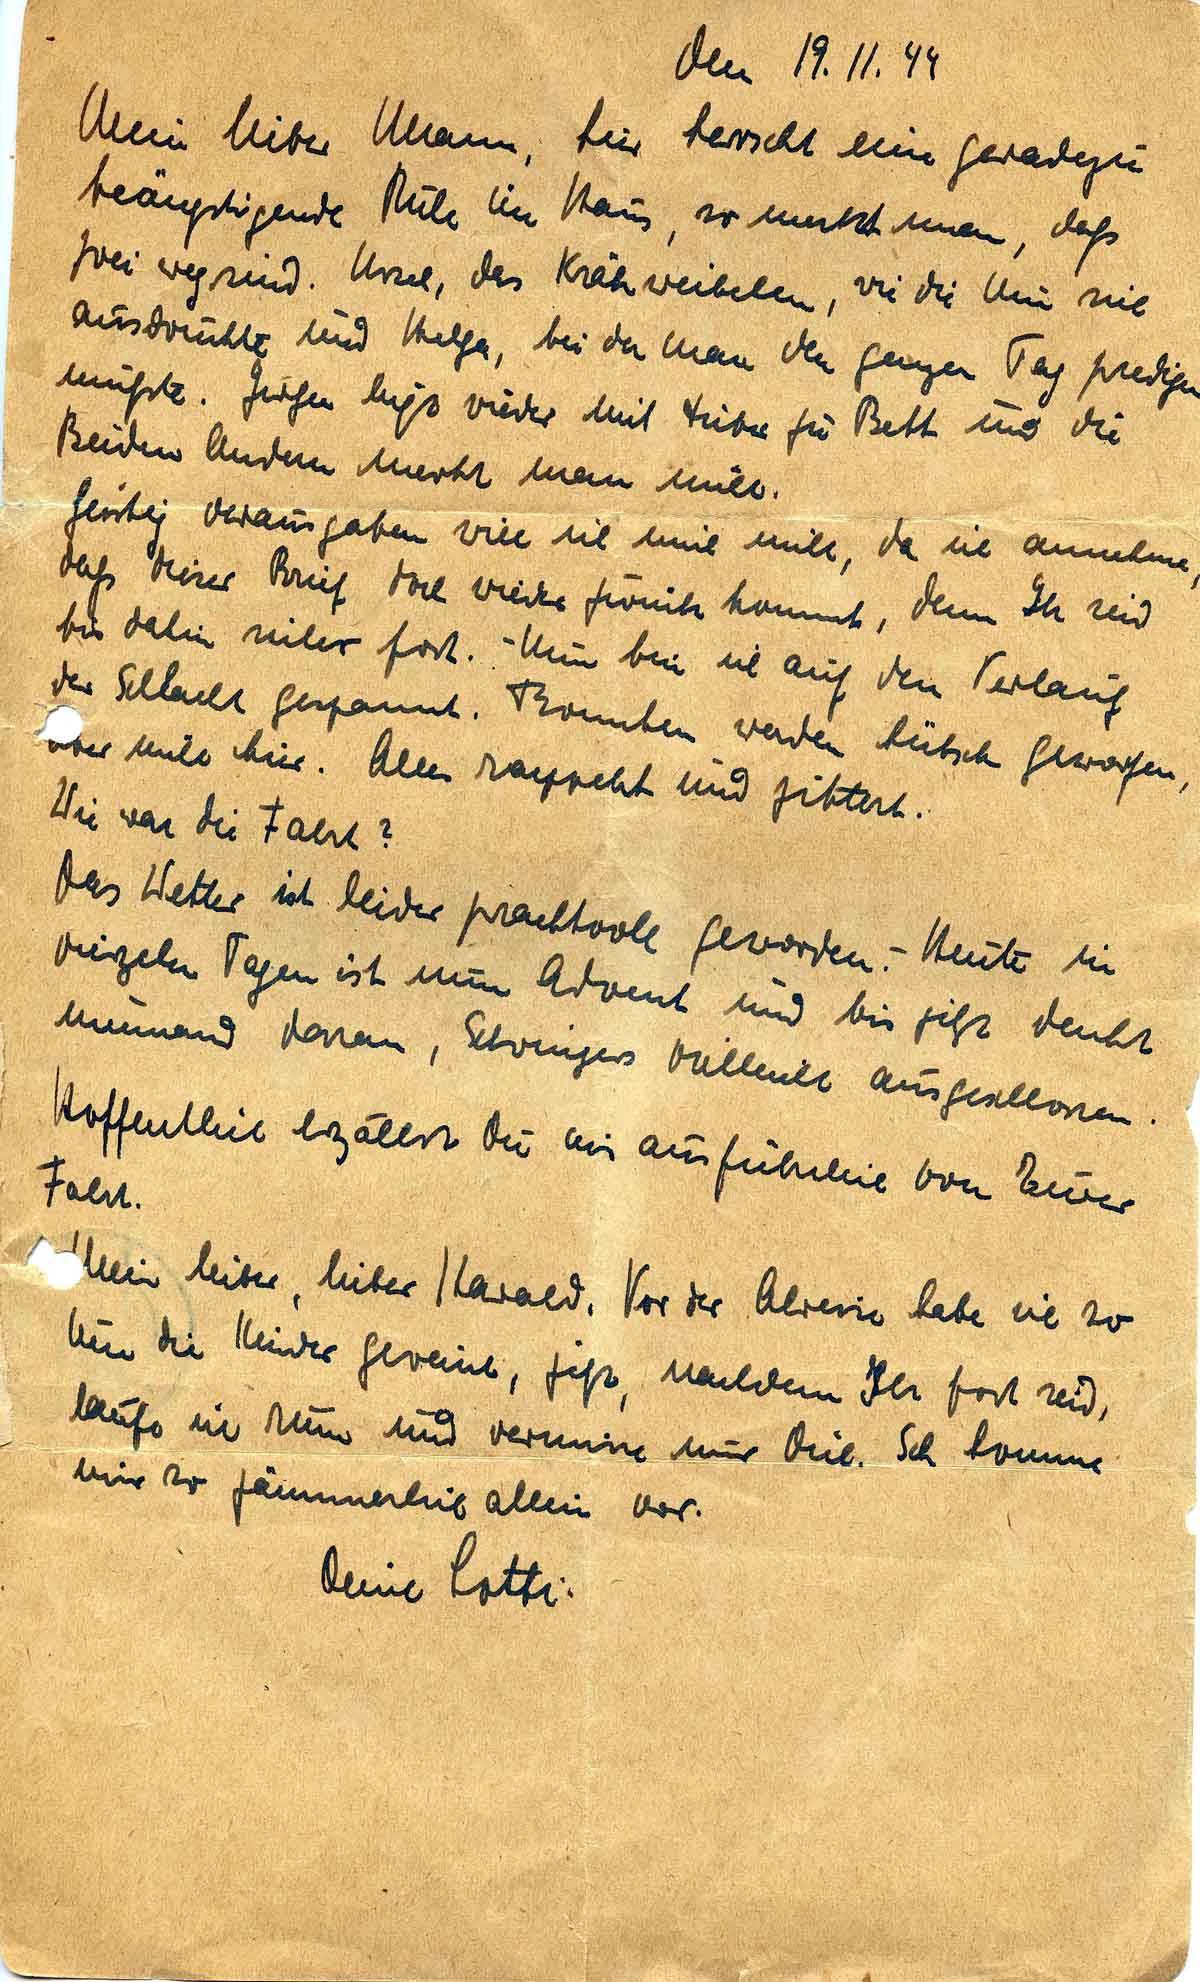 den 19.11.44
Mein lieber Mann, hier herrscht eine geradezu
beängstigende Ruhe im Haus, so merkt man, daß
zwei weg sind. Ursel, das Krähweibchen, wie die sich
ausdrückte und Helga, bei der man den ganzen Tag predigen
mußte. Jürgen liegt wieder mit Fieber zu Bett und die
Beiden Andern merkt man nicht.
Geistig verausgaben will ich mich nicht, da ich annehme,
daß dieser Brief doch wieder zurück kommt, denn Ihr seid
bis dahin sicher fort. - Nun bin ich auf den Verlauf
der Schlacht gespannt. Bomben werden hübsch geworfen,
aber nicht hier. Alles rappelt und zittert.
Wie war die Fahrt?
Das Wetter ist leider prachtvoll geworden. - Heute in
vierzehn Tagen ist nun Advent und bis jetzt denkt
niemand daran, Schwingers vielleicht ausgeschlossen.
Hoffentlich erzählst Du mir ausführlich von Eurer
Fahrt.
Mein lieber, lieber Harald. Vor der Abreise habe ich so
um die Kinder geweint, jetzt, nachdem Ihr fort seid,
laufe ich rum und vermisse nur Dich. Ich komme
mir so jämmerlich allein vor.
Deine Lotti.